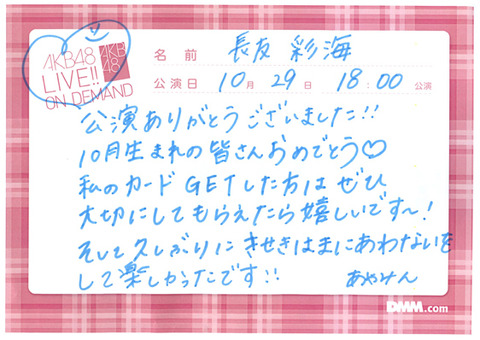 AKB48
LIVE!!
ON DEMAND
AKB
48
名前 長友 彩海
公演日 10月 29日 18:00 公演
公演ありがとうございました!!
10月生まれの皆さんおめでとう♡
私のカード GETした方は ぜひ
大切にしてもらえたら嬉しいです〜!
そして久しぶりに きせきはまにあわないを
して楽しかったです!!
あやみん
DMM.com